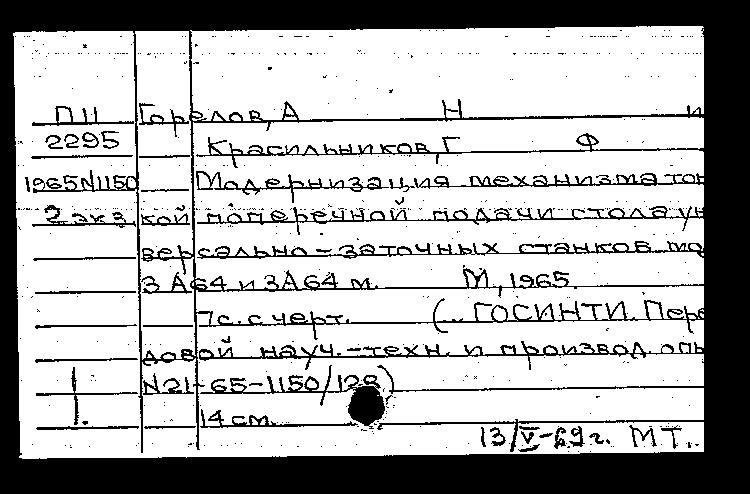 ПII Горелов, А Н и
2295 Красильников, Г Ф
1965N1150 Модернизация механизма тон
2 экз кой поперечной подачи стола ун
версально-заточных станков мо
3А64 и 3А64 м. М., 1965.
7с. с черт. (.. ГОСИНТИ. Пере
довой науч.-техн. и производ. опы
N21-65-1150/128)
14 см.
13/V-69г. МТ..